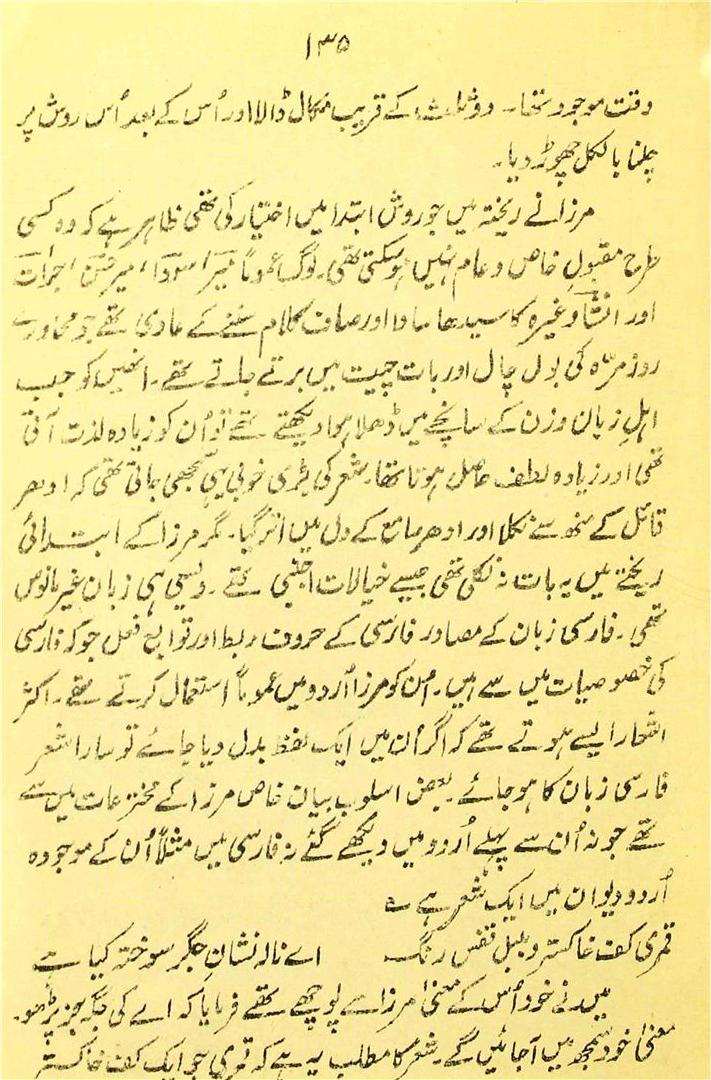 ۱۳۵
وقت موجود تھا۔ دو ثلث کے قریب نکال ڈالا اور اُس کے بعد اُس روش پر
چلنا بالکل چھوڑ دیا۔
مرزا نے ریختہ میں جو روش ابتدا میں اختیار کی تھی ظاہر ہے کہ وہ کسی
طرح مقبولِ خاص و عام نہیں ہو سکتی تھی۔ لوگ عموماً میر، سودا، میر حسن، جرأت
اور انشا وغیرہ کا سیدھا سادا اور صاف کلام سننے کے عادی تھے جو محاورے
روز مرّہ کی بول چال اور بات چیت میں برتے جاتے تھے۔ انھیں کو جب
اہلِ زبان وزن کے سانچے میں ڈھلا ہوا دیکھتے تھے تو اُن کو زیادہ لذت آتی
تھی اور زیادہ لطف حاصل ہوتا تھا۔ شعر کی بڑی خوبی یہی سمجھی جاتی تھی کہ اودھر
قائل کے منھ سے نکلا اور ادھر سامع کے دل میں اتر گیا۔ مگر مرزا کے ابتدائی
ریختے میں یہ بات نہ نکلی تھی جیسے خیالات اجنبی تھے۔ ویسی ہی زبان غیر مانوس
تھی۔ فارسی زبان کے مصادر فارسی کے حروف ربط اور توابع فعل جو کہ فارسی
کی خصوصیات میں سے ہیں۔ اُن کو مرزا اُردو میں عموماً استعمال کرتے تھے۔ اکثر
اشعار ایسے ہوتے تھے کہ اگر اُن میں ایک لفظ بدل دیا جائے تو سارا شعر
فارسی زبان کا ہو جائے۔ بعض اسلوب بیان خاص مرزا کے مخترعات میں سے
تھے جو نہ اُن سے پہلے اُردو میں دیکھے گئے نہ فارسی میں مثلاً اُن کے موجودہ
اُردو دیوان میں ایک شعر ہے ؎
قمری کف خاکستر و بلبل قفس رنگ اے نالہ نشانِ جگر سوختہ کیا ہے
میں نے خود اُس کے معنی مرزا سے پوچھے تھے فرمایا کہ اے کی جگہ جز پڑھو۔
معنی خود سمجھ میں آجائیں گے۔ شعر کا مطلب یہ ہے کہ قمری جو ایک کف خاکستر